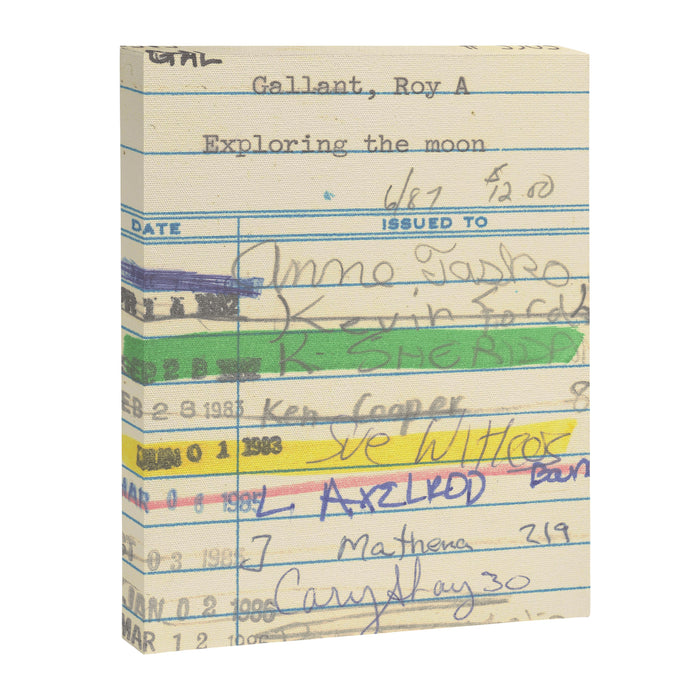 GAL
Gallant, Roy A
Exploring the moon
6/87 $12.00
DATE ISSUED TO
Anne Tasko
PR 1 4 1982 Kevin Ford
SEP 2 8 K. SHERIDA
EB 2 8 1983 Ken Cooper 8
JUN 0 1 1983 Sue Witcos
MAR 0 6 1985 L AXELROD Ban
CT 0 3 1985 J Mathena 219
JAN 0 2 1986 Cary Shay 30
MAR 1 2 1986